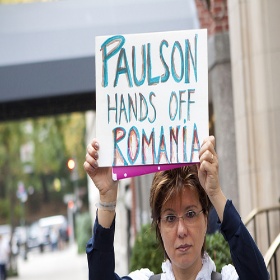 PAULSON
HANDS OFF
ROMANIA